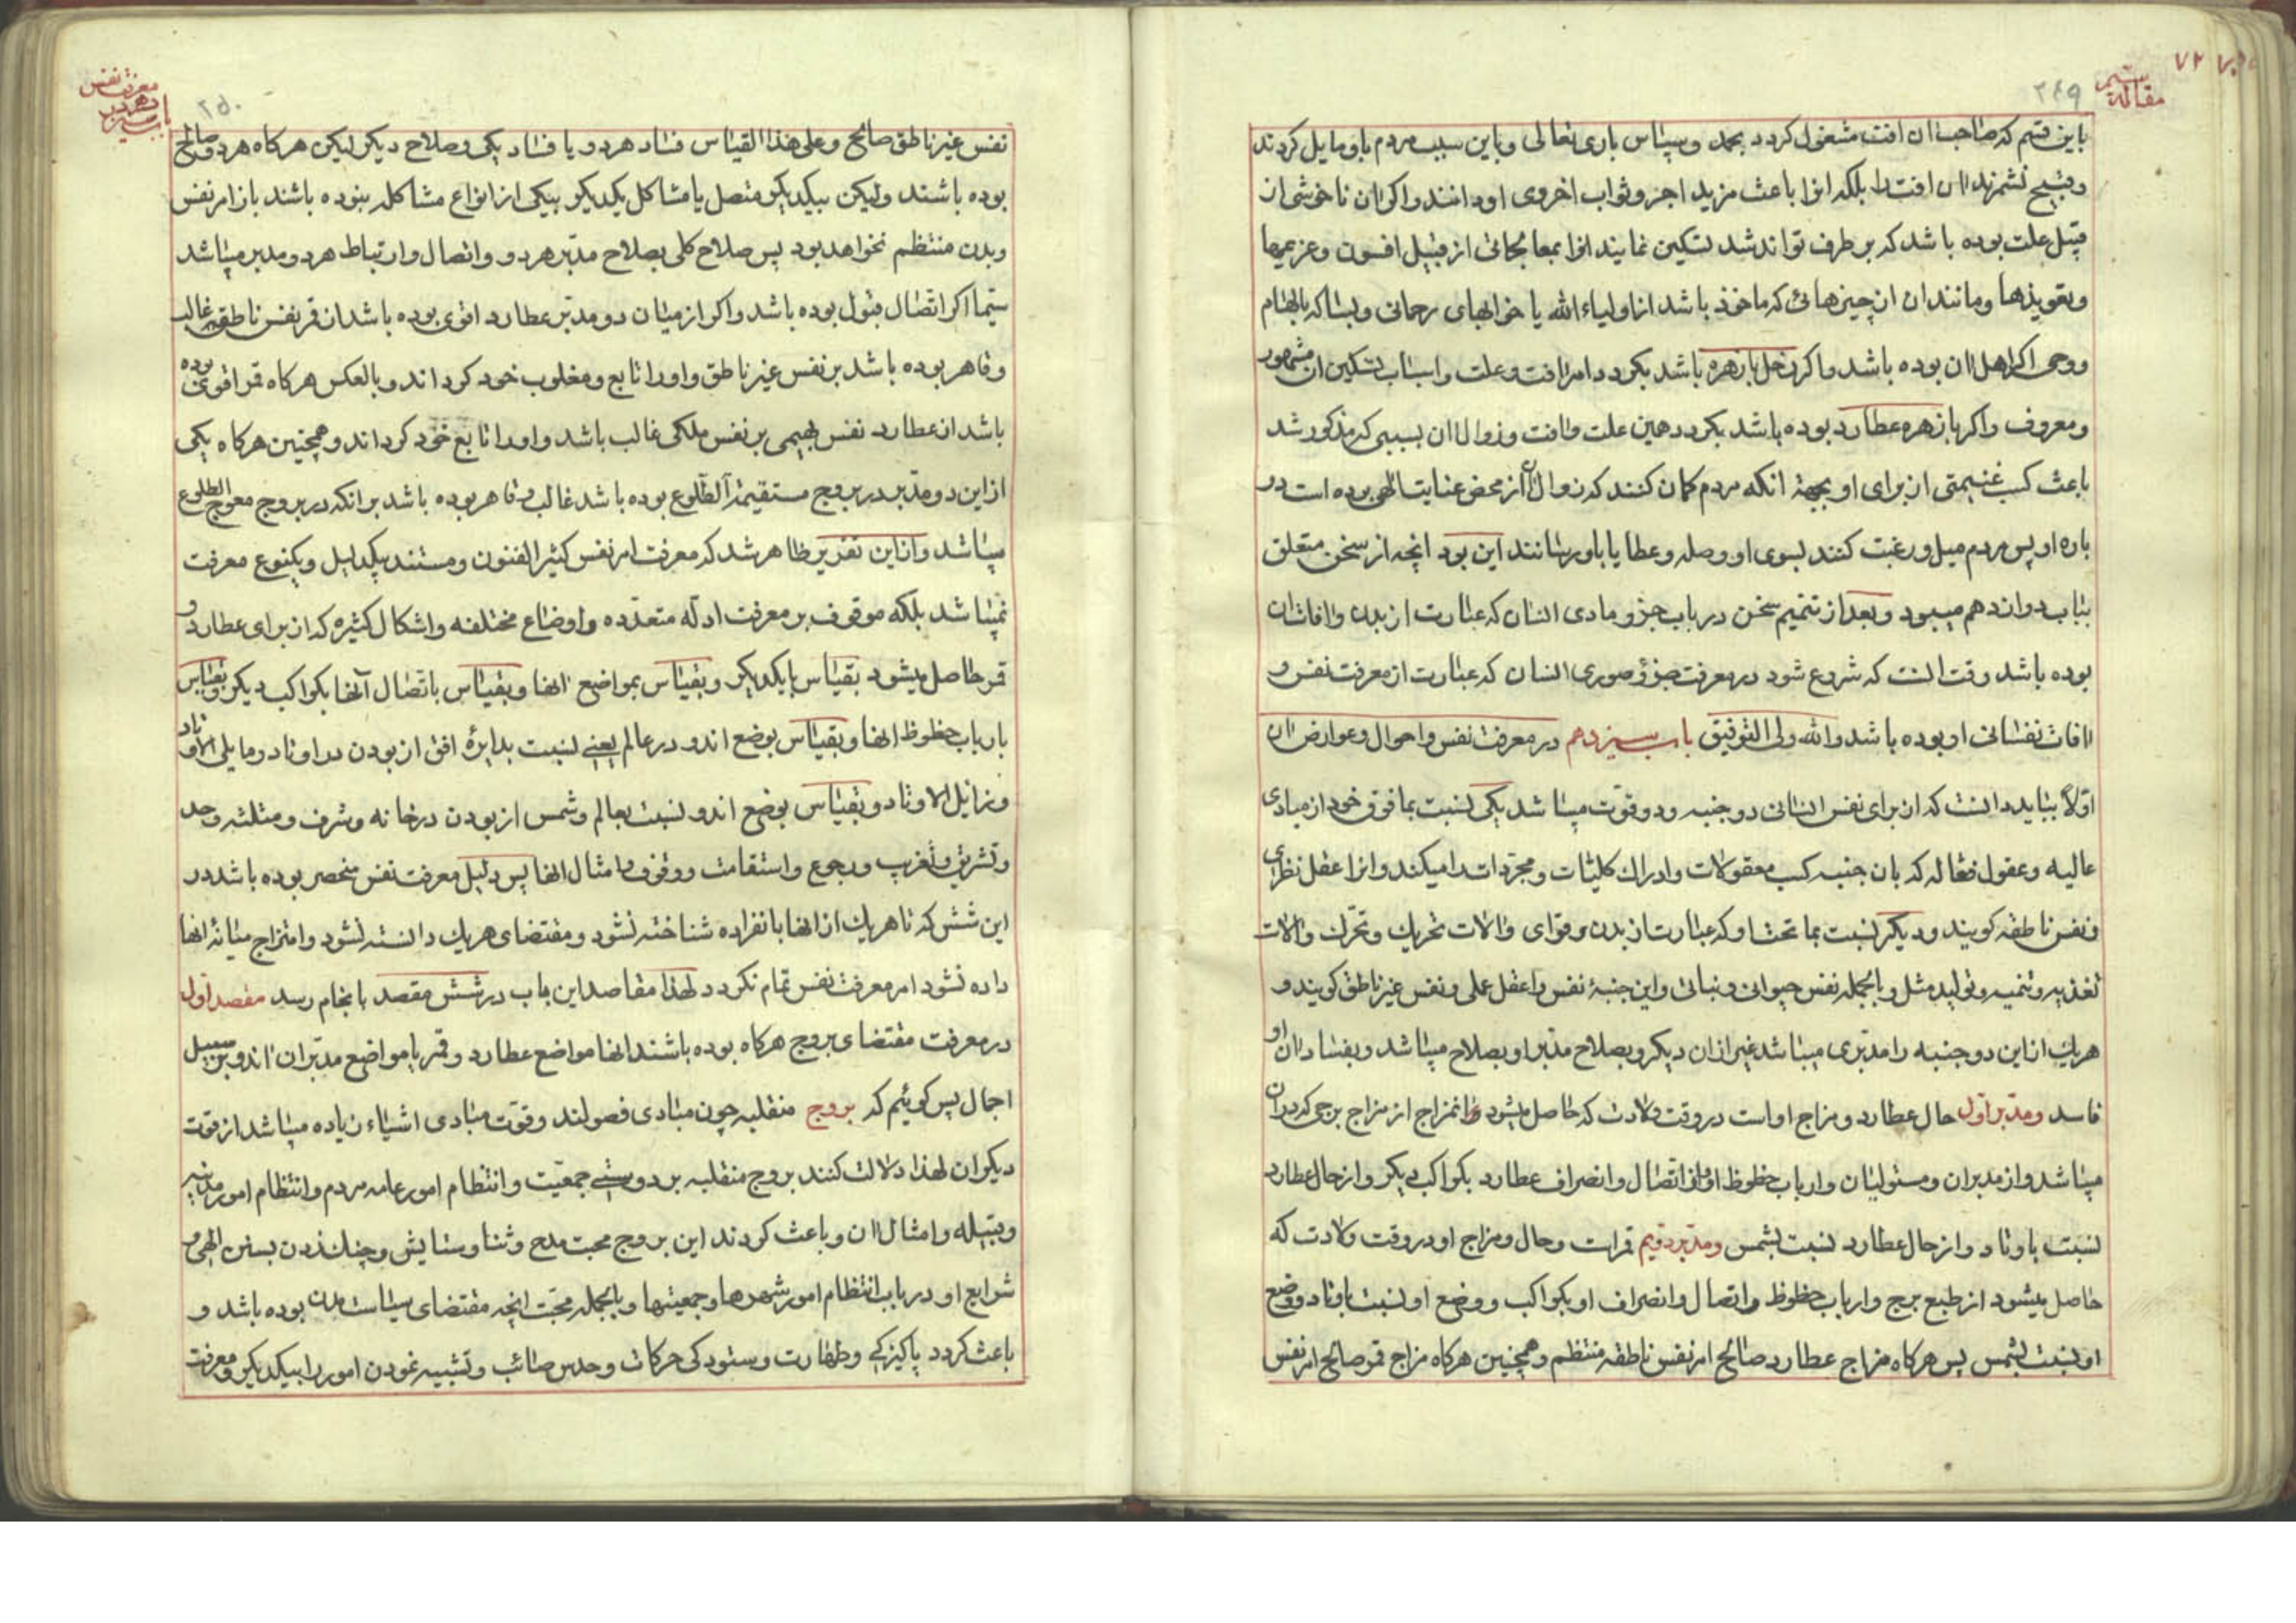 مقاله سیم
۲۴۹
۷۲
باین قسم که صاحب ان افت مشغول کردد بحمد و سپاس باری تعالی و باین سبب مردم باو مایل کردند
و قبیح نشمرند ان افت را بلکه انرا باعث مزید اجر و ثواب اخروی او دانند و اکر ان ناخوشی از
قبیل علت بوده باشد که برطرف تواند شد تسکین نمایند انرا بمعالجاتی از قبیل افسون و عزیمها
و تعویذها و مانند ان از چیزهائی که ماخوذ باشد از اولیاء الله یا خوابهای رحمانی و بسا که بالهام
و وحی اکر اهل ان بوده باشد و اکر زحل با زهره باشد بکردد امر افت و علت و اسباب تسکین ان مشهور
و معروف و اکر با زهره عطارد بوده باشد بکردد همین علت و افت و زوال ان بسببی که مذکور شد
باعث کسب غنیمتی از برای او بجهة انکه مردم کمان کنند که زوال ان از محض عنایت الهی بوده است در
باره او پس مردم میل و رغبت کنند بسوی او وصله و عطایا باو رسانند این بود انچه از سخن متعلق
بباب دوازدهم میبود و بعد از تتمیم سخن در باب جزو مادی انسان که عبارت از بدن و افات ان
بوده باشد وقت انست که شروع شود در معرفت جزو صوری انسان که عبارت از معرفت نفس و
افات نفسانی او بوده باشد والله ولی التوفیق باب سیزدهم در معرفت نفس و احوال و عوارض ان
اولاً بباید دانست که از برای نفس انسانی دو جنبه و دو قوت میباشد یکی نسبت بما فوق خود از مبادی
عالیه و عقول فعاله که بان جنبه کسب معقولات و ادراک کلیات و مجردات را میکند و انرا عقل نظرای
و نفس ناطقه کویند و دیکر نسبت بما تحت او که عبارت از بدن و قوای و الات تحریک و تحرک و الات
تغذیه و تنمیه و تولید مثل و بالجمله نفس حیوانی و نباتی و این جنبهٔ نفس را عقل عملی و نفس غیر ناطق کویند و
هریک از این دو جنبه را مدبری میباشد غیر از ان دیکر و بصلاح مدبر او بصلاح میباشد و بفساد ان او
فاسد و مدبر اول حال عطارد و مزاج او است در وقت ولادت که حاصل میشود ان مزاج از مزاج برجی که در ان
میباشد و از مدبران و مستولیان و ارباب حظوظ او و از اتصال و انصراف عطارد بکواکب دیکر و از حال عطارد
نسبت باوتاد و از حال عطارد نسبت بشمس و مدبر دویم قمر است و حال و مزاج او در وقت ولادت که
حاصل میشود از طبع برج و ارباب حظوظ و اتصال و انصراف او بکواکب و وضع او نسبت باوتاد و وضع
او نسبت بشمس پس هرکاه مزاج عطارد صالح امر نفس ناطقه منتظم و همچنین هرکاه مزاج قمر صالح امر نفس
معرفت نفس
باب سیزدهم در
۲۵۰
نفس غیر ناطق صالح و علی هذا القیاس فساد هردو یا فساد یکی و صلاح دیکر لیکن هرکاه هردو صالح
بوده باشند ولیکن بیکدیکر متصل یا مشاکل یکدیکر بیکی از انواع مشاکله نبوده باشند باز امر نفس
و بدن منتظم نخواهد بود پس صلاح کلی بصلاح مدبر هردو و اتصال و ارتباط هردو مدبر میباشد
سیما اکر اتصال قبول بوده باشد و اکر از میان دو مدبر عطارد اقوی بوده باشد از قمر نفس ناطقه غالب
و قاهر بوده باشد بر نفس غیر ناطق و او را تابع و مغلوب خود کرداند و بالعکس هرکاه قمر اقوی بوده
باشد از عطارد نفس بهیمی بر نفس ملکی غالب باشد و او را تابع خود کرداند و همچنین هرکاه یکی
از این دو مدبر در بروج مستقیمة الطلوع بوده باشد غالب و قاهر بوده باشد بر انکه در بروج معوج الطلوع
میباشد و از این تقریر ظاهر شد که معرفت امر نفس کثیر الفنون و مستند بیکدلیل و یکنوع معرفت
نمیباشد بلکه موقوف بر معرفت ادله متعدده و اوضاع مختلفه و اشکال کثیره که از برای عطارد و
قمر حاصل میشود بقیاس بایکدیکر و بقیاس بمواضع انها و بقیاس باتصال آنها بکواکب دیکر و بقیاس
بارباب حظوظ انها و بقیاس بوضع اندو در عالم یعنی نسبت بدایرهٔ افق از بودن در اوتاد و مایلی الاوتاد
و زایل الاوتاد و بقیاس بوضع اندو نسبت بعالم و شمس از بودن در خانه و شرف و مثلثه و حد
و تشریق و تغریب و رجوع و استقامت و وقوف و امثال انها پس دلیل معرفت نفس منحصر بوده باشد در
این شش که تا هریک از انها بانفراده شناخته نشود و مقتضای هریک دانسته نشود و امتزاج میانهٔ انها
داده نشود امر معرفت نفس تمام نکردد لهذا مقاصد این باب در شش مقصد بانجام رسد مقصد اول
در معرفت مقتضای بروج هرکاه بوده باشند انها مواضع عطارد و قمر یا مواضع مدبران اندو بر سبیل
اجمال پس کوئیم که بروج منقلبه چون مبادی فصولند و قوت مبادی اشیاء زیاده میباشد از قوت
دیکران لهذا دلالت کنند بروج منقلبه بر دوستی جمعیت و انتظام امور عامه مردم و انتظام امور مدنیه
و قبیله و امثال ان و باعث کردند این بروج محبت مدح و ثنا و ستایش و چنک زدن بسنن الهی و
شرایع او در باب انتظام امور شهرها و جمعیتها و بالجمله محبت انچه مقتضای سیاست مدن بوده باشد و
باعث کردد پاکیزکی و طهارت و ستودکی حرکات و حدس صائب و تشبیه نمودن امور را بیکدیکر و معرفت